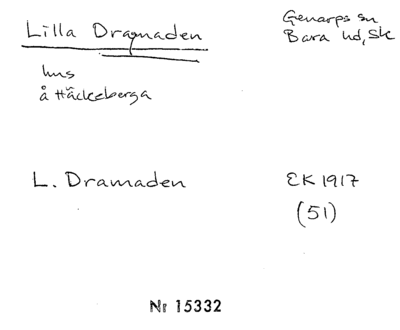 Lilla Dragnaden
Genarps sn
Bara hd, Sk
hus
å Häckeberga
L. Dramaden
EK 1917
(51)
Nr 15332